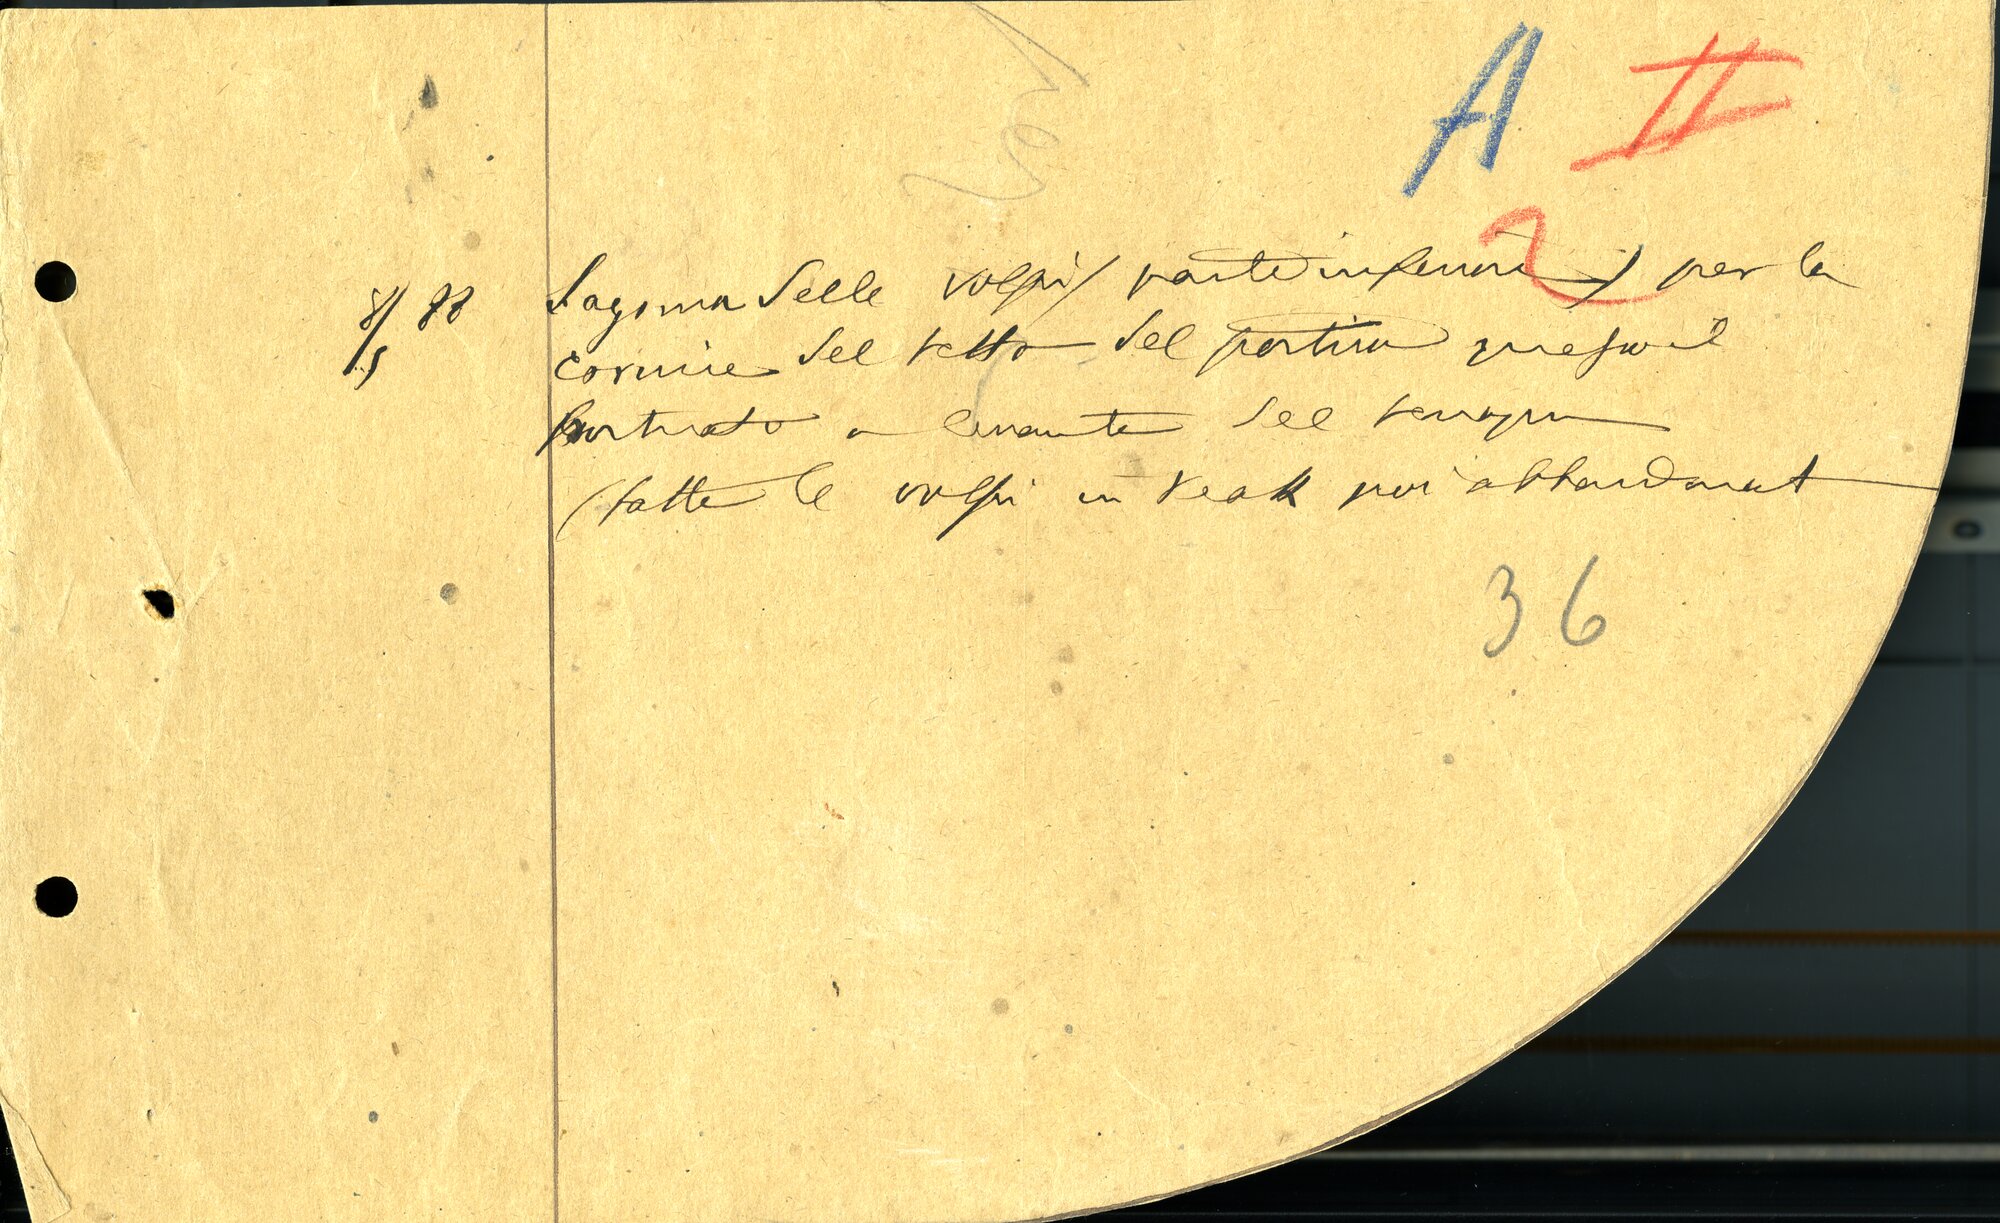 A II
2
8/5 88 Sagoma delle volpi (parte inferiore) per la
cornice del tetto del portico presso il
a levante del
(fatte le volpi in teak poi abbandonat
36